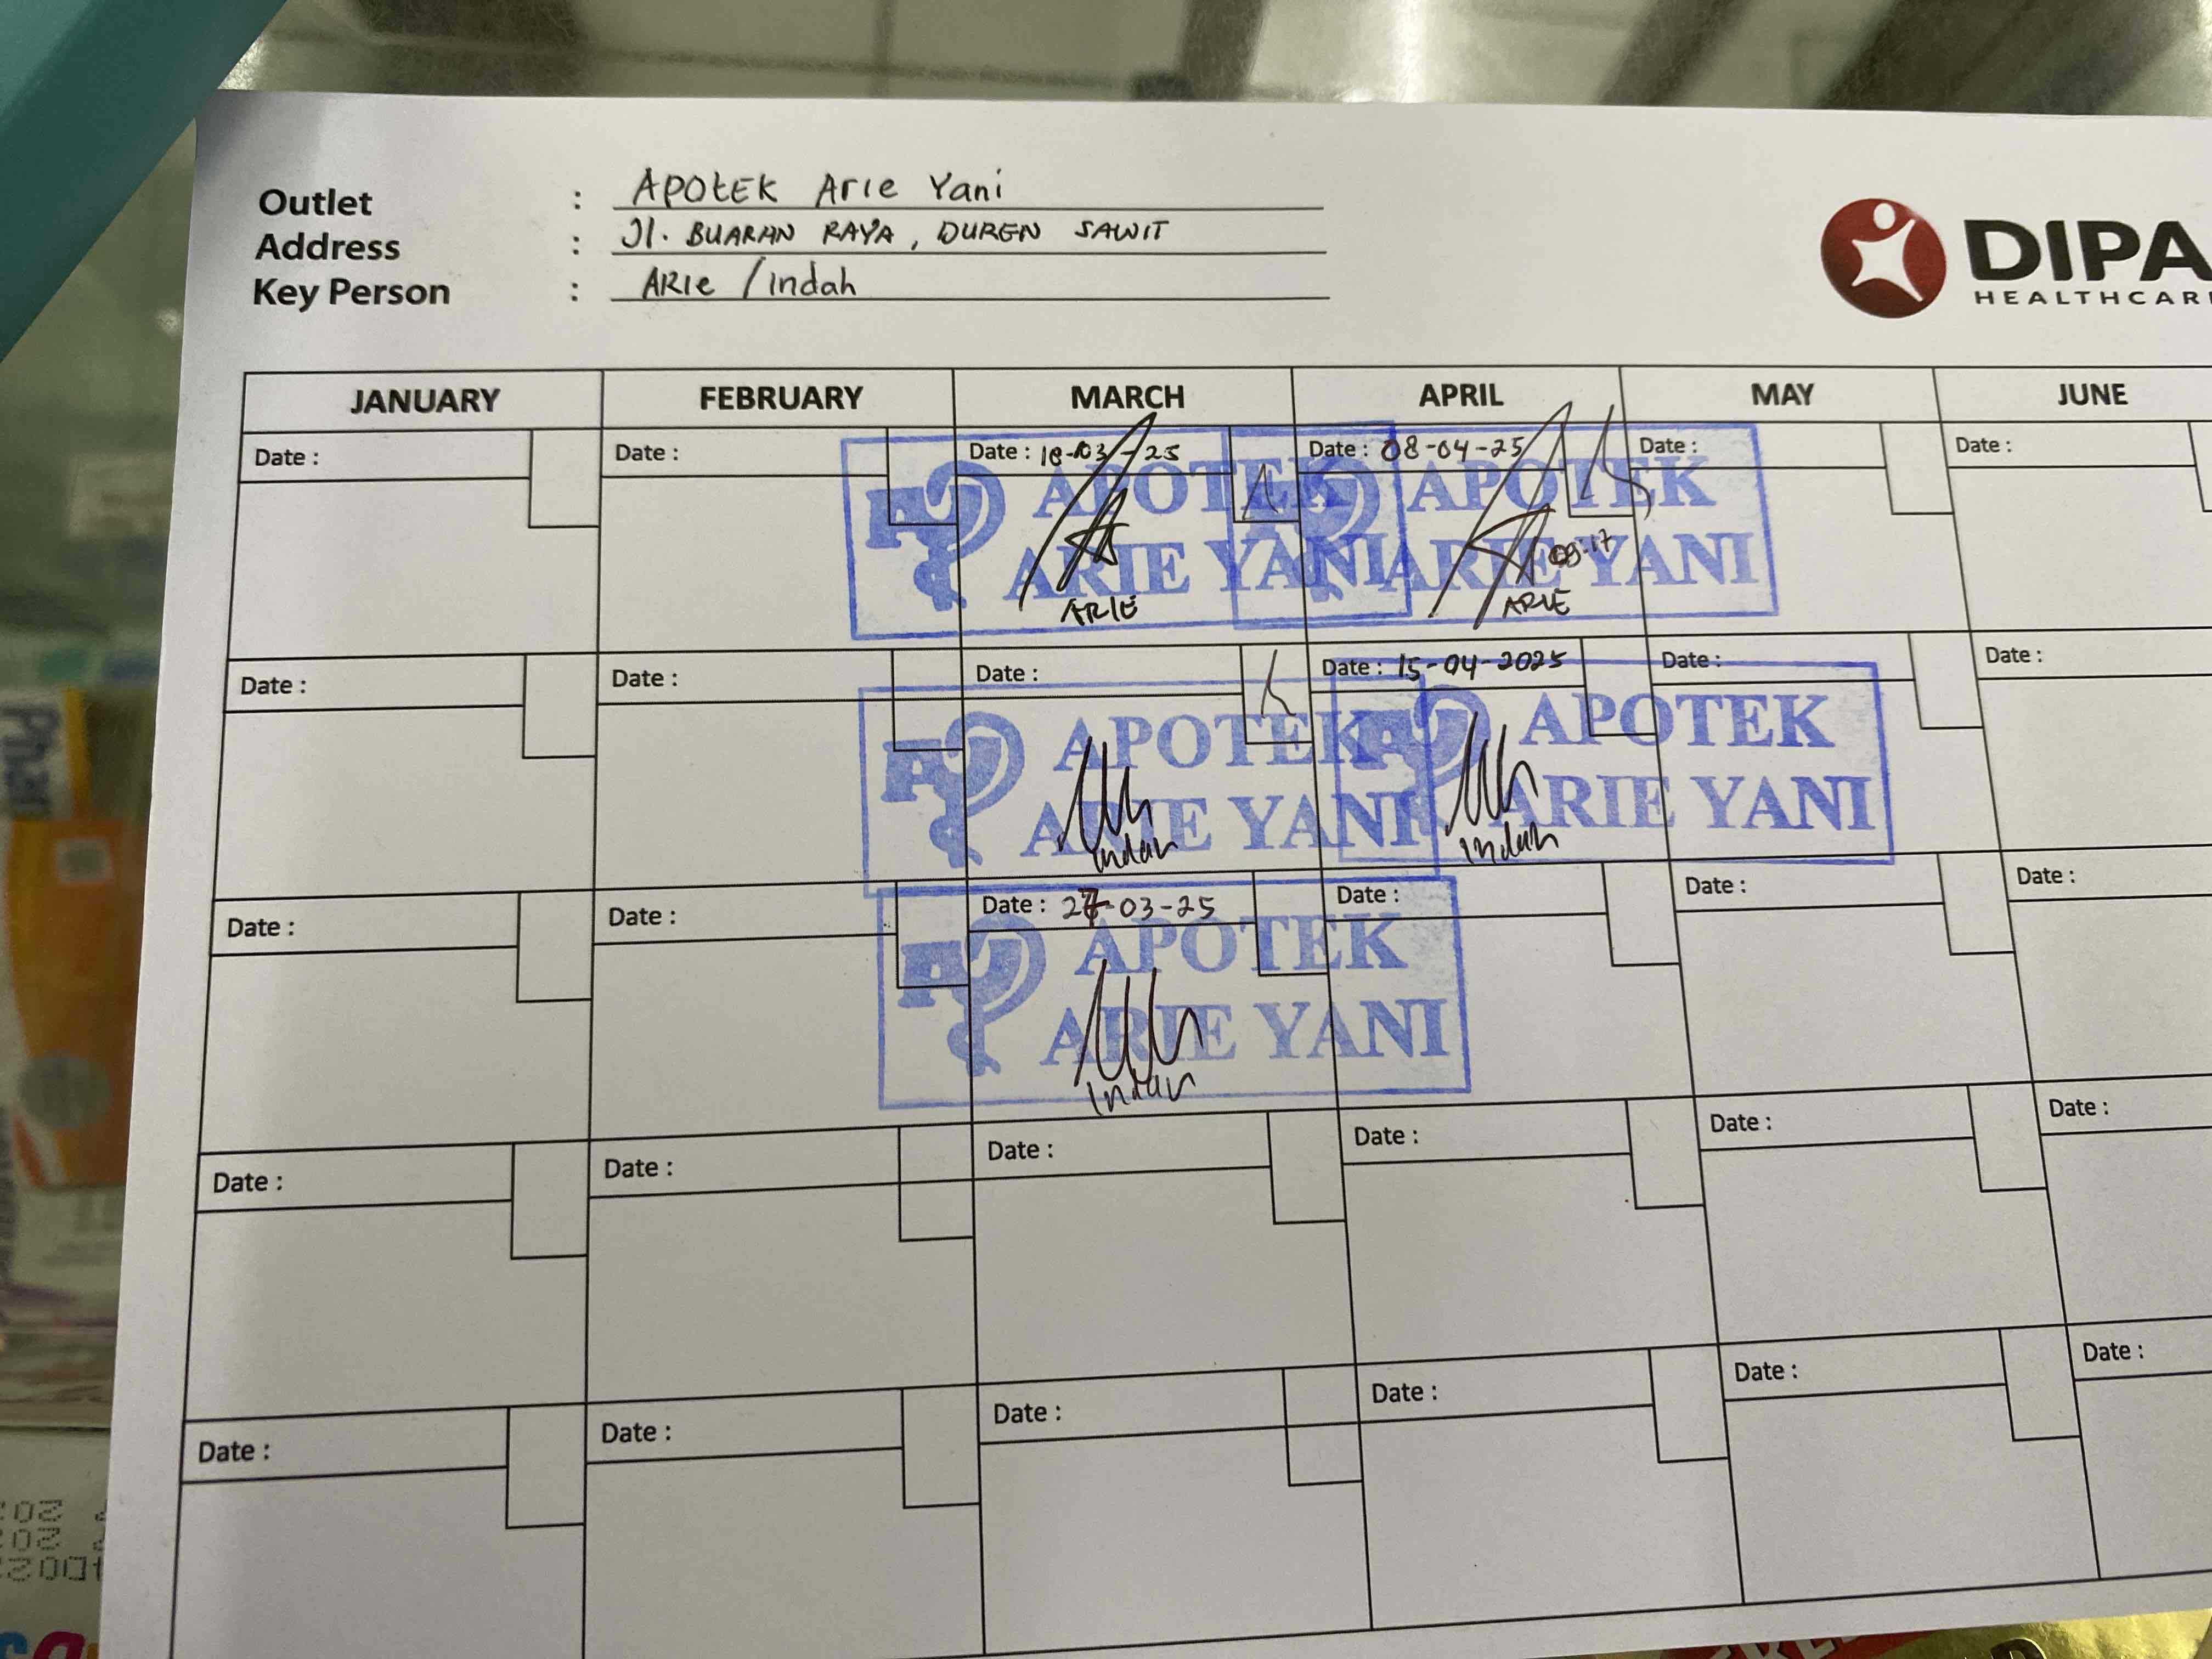 Outlet : APOTEK Arie Yani
Address : Jl. BUARAN RAYA, DUREN SAWIT
Key Person : ARIE / Indah
DIPA
HEALTHCAR
JANUARY FEBRUARY MARCH APRIL MAY JUNE
Date : Date : Date : 18-03-25 Date : 08-04-25 Date : Date :
APOTEK APOTEK
ARIE YANI ARIE YANI
09:17
ARIE ARIE
Date : Date : Date : Date : 15-04-2025 Date : Date :
APOTEK APOTEK
ARIE YANI ARIE YANI
Indah Indah
Date : Date : Date : 27-03-25 Date : Date : Date :
APOTEK
ARIE YANI
Indah
Date : Date : Date : Date : Date : Date :
Date : Date : Date : Date : Date : Date :